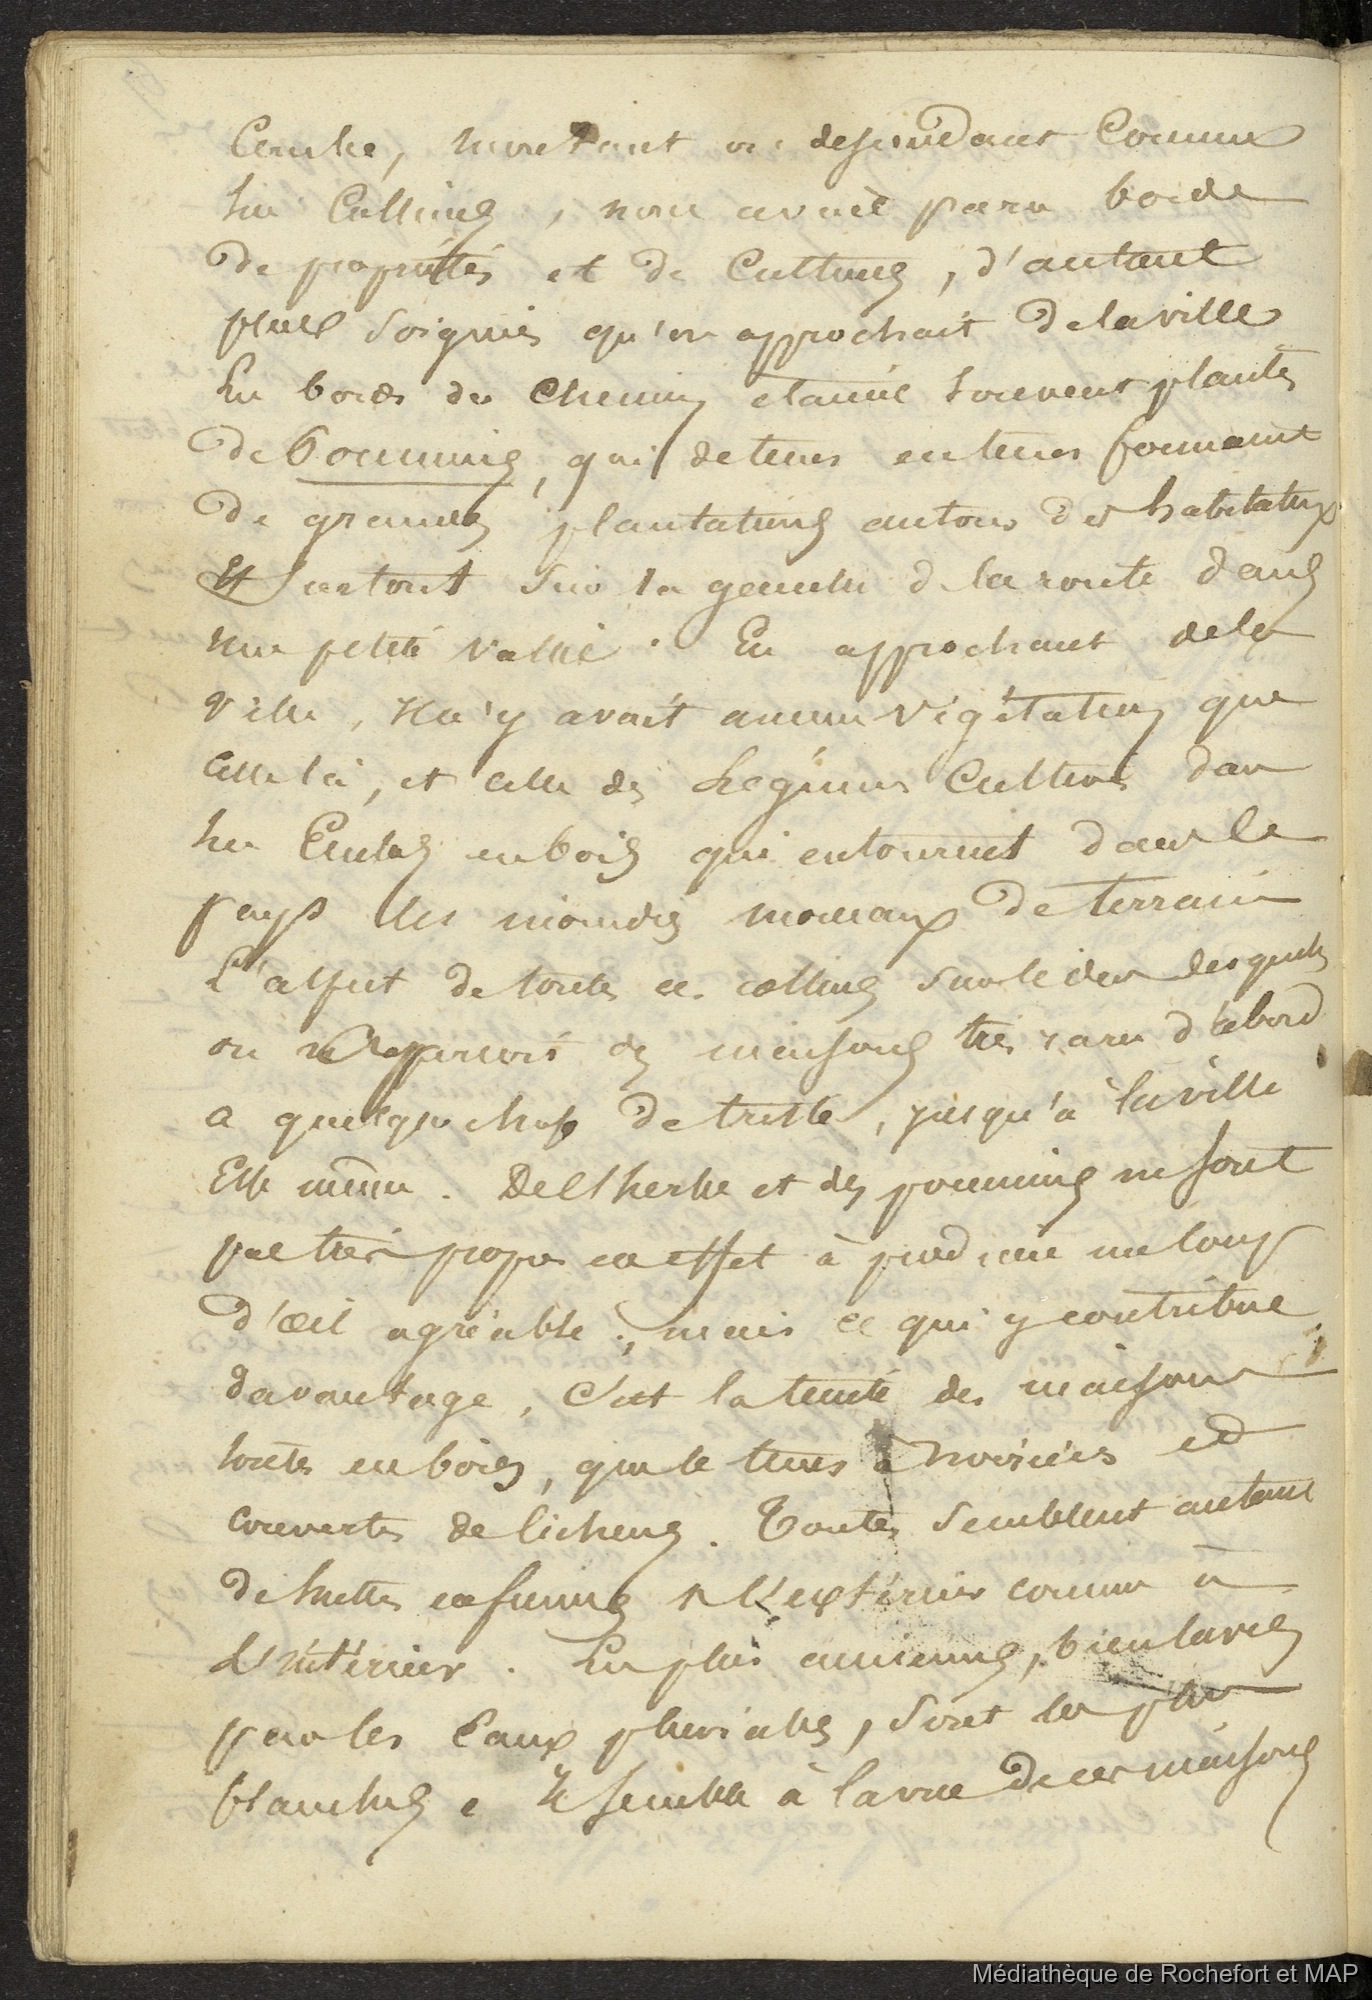 montant ou descendant Comme
les Collines, nous avait paru bordé
De propriétés et De Cultures, d'autant
plus Soignés qu'on approchait De la ville
Les bords du Chemin étaient Souvent plantés
De Pommiers, qui de tems en tems formaient
De grandes plantations autour des habitations
Et Surtout Sur la gauche de la route dans
une petite vallée. En approchant de la
ville, il n'y avait aucune végétation que
celle là, et celle des Légumes Cultivés dans
les Enclos en bois qui entourent dans le
pays les moindres morceaux De terrain
L'aspect De toutes ces collines sur le dos desquels
on n'apperçoit des maisons très rares d'abord
a quelque chose De triste, jusqu'à la ville
Elle même. De l'herbe et des pommiers ne sont
pas très propres en effet à produire un coup
D'œil agréable; mais ce qui y contribue
davantage, c'est la teinte des maisons
toutes en bois, que le tems a noircies et
couvertes de lichens. Toutes semblent autant
De huttes enfumées à l'extérieur comme à
L'intérieur. Les plus anciennes, bien lavées
par les Eaux pluviales, sont les plus
blanches. Il semble à la vue De ces maisons
Médiathèque de Rochefort et MAP